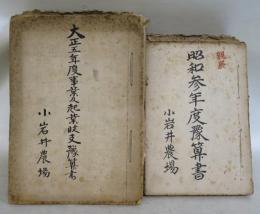 大正五年度事業及起業收支豫算書
小岩井農場
昭和参年度豫算書
小岩井農場